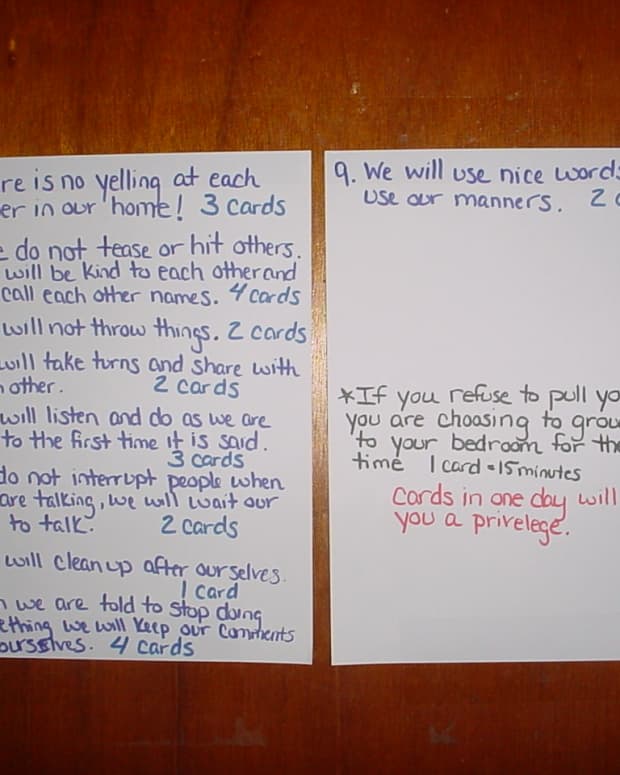 re is no yelling at each
er in our home! 3 cards
e do not tease or hit others.
will be kind to each other and
call each other names. 4 cards
will not throw things. 2 cards
will take turns and share with
other. 2 cards
will listen and do as we are
to the first time it is said.
3 cards
do not interrupt people when
are talking, we will wait our
to talk. 2 cards
will clean up after ourselves.
1 card
n we are told to stop doing
ething we will keep our comments
ourselves. 4 cards
9. We will use nice words
use our manners. 2 c
*If you refuse to pull yo
you are choosing to grou
to your bedroom for the
time 1 card = 15 minutes
Cards in one day will
you a privelege.